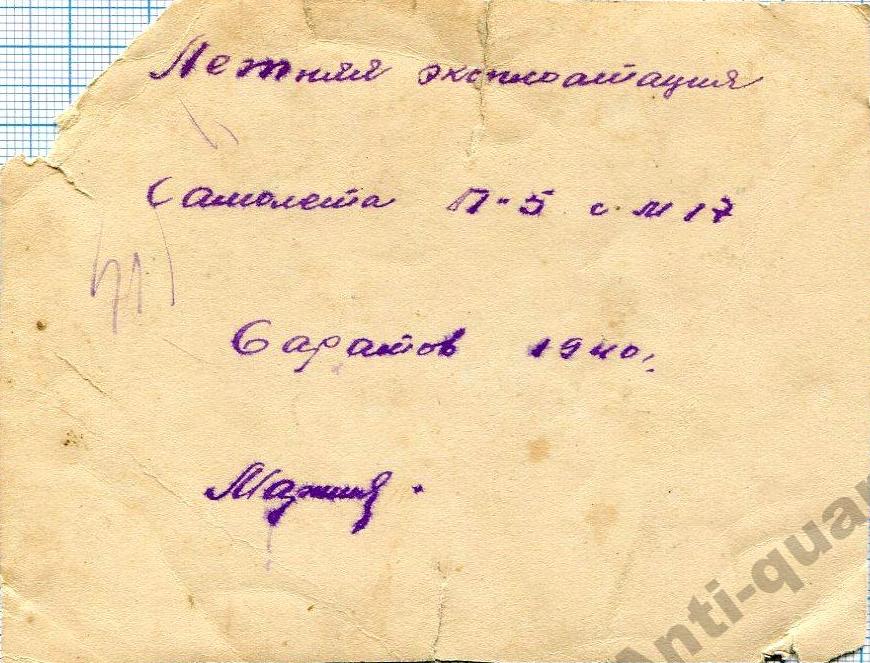 Летняя эксплоатация
Самолета П-5 с м 17
Саратов 1940г.
Anti-quar